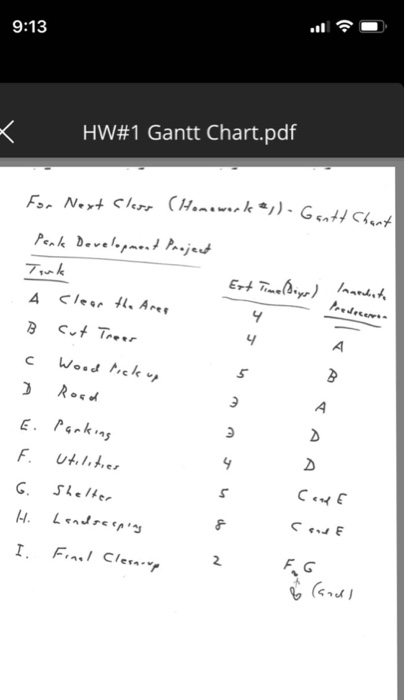 9:13
HW#1 Gantt Chart.pdf
For Next Class (Homework #1) - Gantt Chart
Park Development Project
Task Est Time (Days) Immediate Predecessor
A Clear the Area 4
B Cut Trees 4 A
C Wood Pick up 5 B
D Road 3 A
E. Parking 3 D
F. Utilities 4 D
G. Shelter 5 C and E
H. Landscaping 8 C and E
I. Final Cleanup 2 F, G
(and)